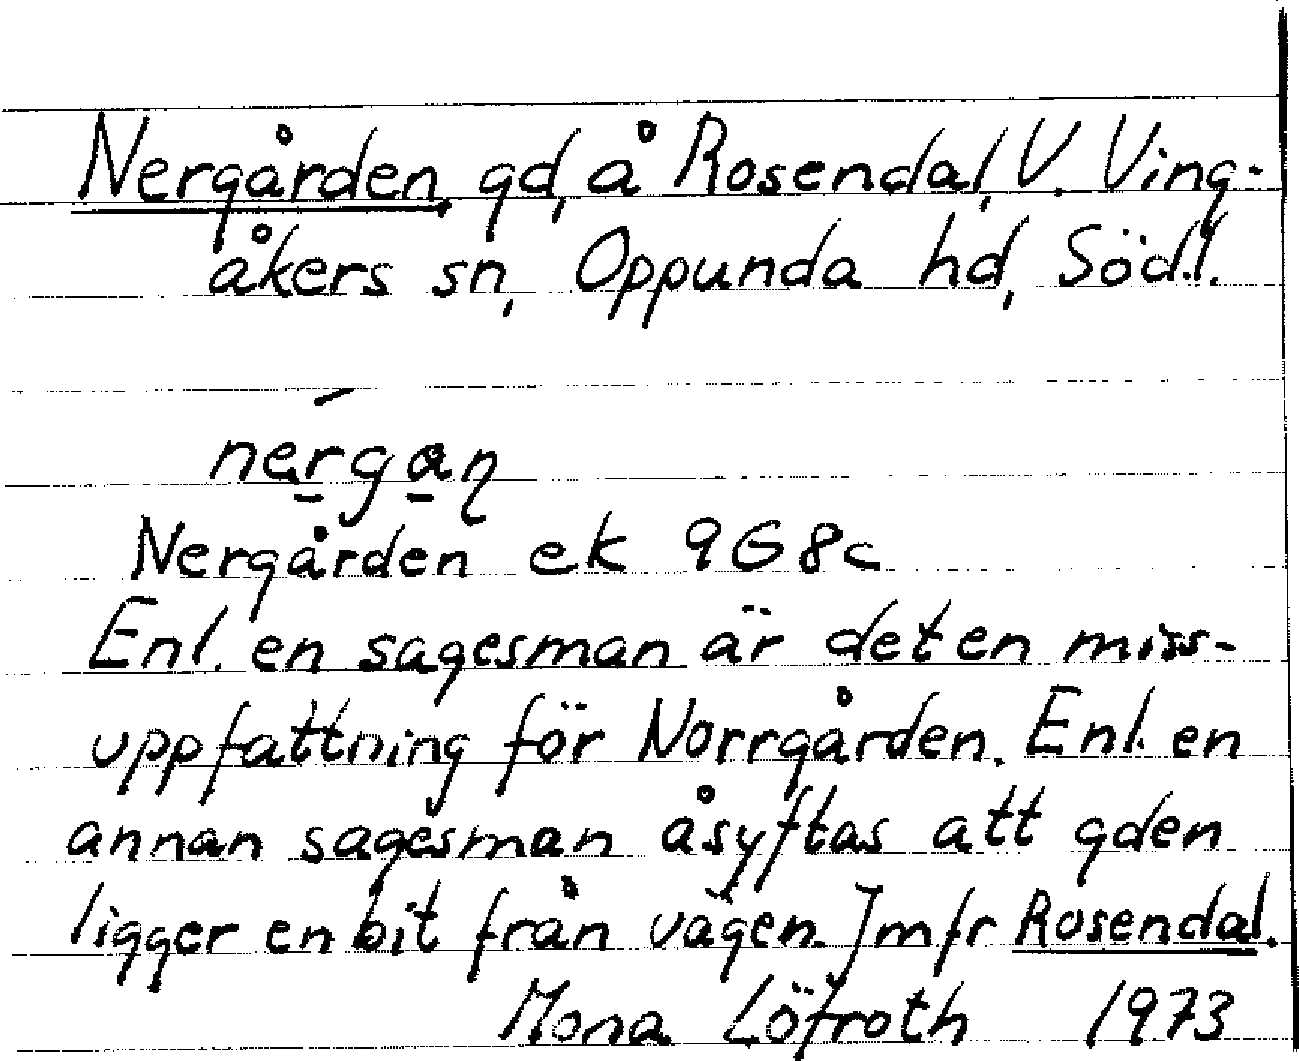 Nergården, gd, å Rosendal, V. Ving-
åkers sn, Oppunda hd, Södl.
nergaɳ
Nergården ek 9G8c
Enl. en sagesman är det en miss-
uppfattning för Norrgården. Enl. en
annan sagesman åsyftas att gden
ligger en bit från vägen. Jmfr Rosendal.
Mona Löfroth 1973